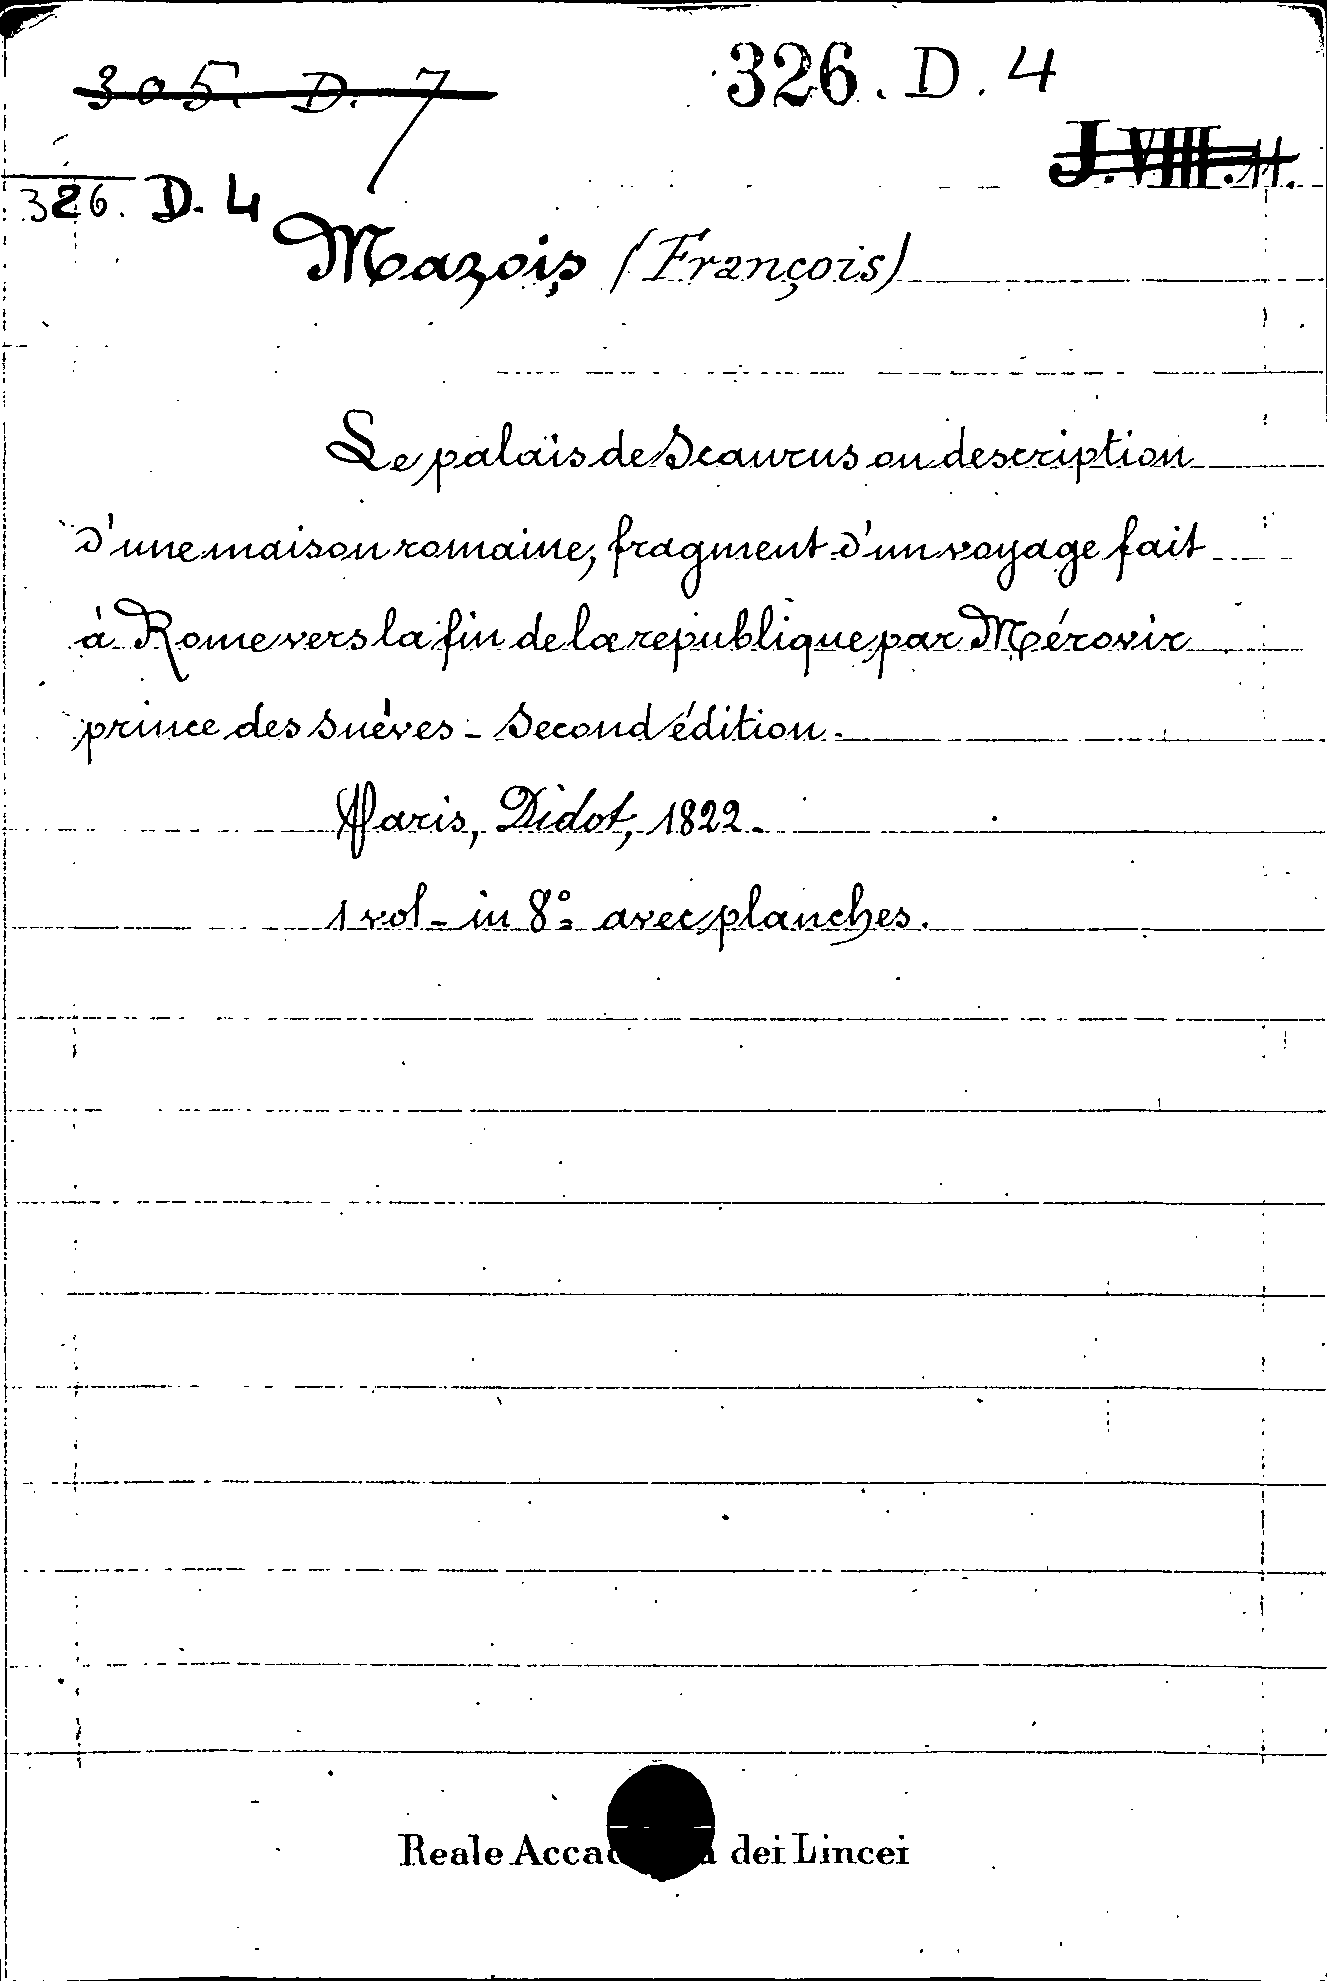 305. D. 7
326. D. 4
J. VIII. 11.
326. D. 4
Mazois (François)
Le palais de Scaurus ou description
d'une maison romaine, fragment d'un voyage fait
à Rome vers la fin de la republique par Mérovir
prince des Suèves - Second édition.
Paris, Didot, 1822.
1 vol - in 8º avec planches.
Reale Acca dei Lincei